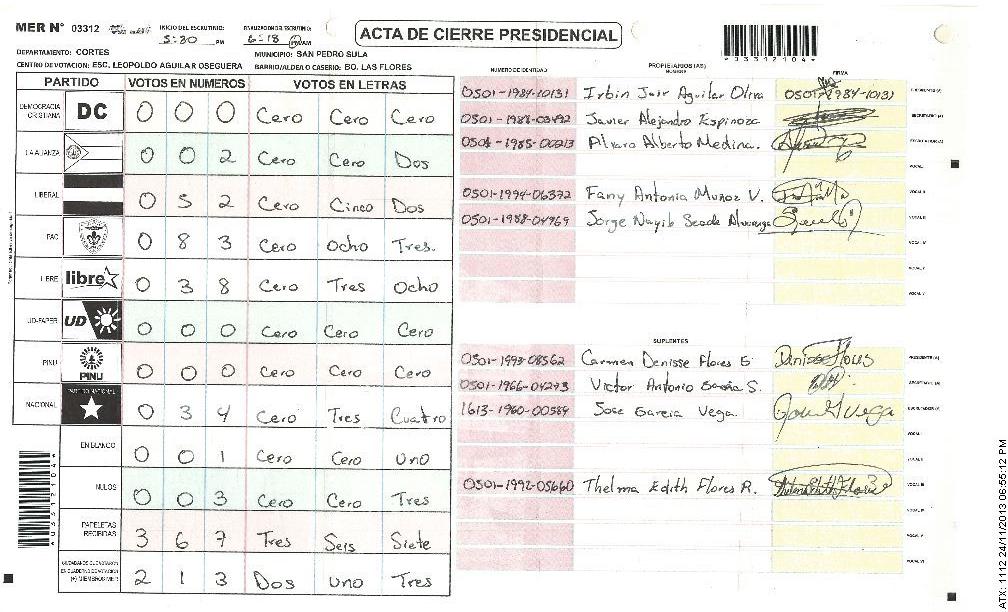 MER N° 03312 INICIO DEL ESCRUTINIO: 5:30 PM FINALIZACION DEL ESCRUTINIO: 6:18 PM/AM
ACTA DE CIERRE PRESIDENCIAL
*03312104*
DEPARTAMENTO: CORTES MUNICIPIO: SAN PEDRO SULA
CENTRO DE VOTACION: ESC. LEOPOLDO AGUILAR OSEGUERA BARRIO/ALDEA O CASERIO: BO. LAS FLORES
PARTIDO VOTOS EN NUMEROS VOTOS EN LETRAS
DEMOCRACIA CRISTIANA DC 0 0 0 Cero Cero Cero
LA ALIANZA 0 0 2 Cero Cero Dos
LIBERAL 0 5 2 Cero Cinco Dos
PAC 0 8 3 Cero Ocho Tres.
LIBRE libre 0 3 8 Cero Tres Ocho
UD-FAPER UD 0 0 0 Cero Cero Cero
PINU PINU 0 0 0 Cero Cero Cero
NACIONAL PARTIDO NACIONAL 0 3 4 Cero Tres Cuatro
EN BLANCO 0 0 1 Cero Cero Uno
NULOS 0 0 3 Cero Cero Tres
PAPELETAS RECIBIDAS 3 6 7 Tres Seis Siete
CIUDADANOS QUE VOTARON EN CUADERNO DE VOTACION (+) MIEMBROS MER 2 1 3 Dos Uno Tres
*03312104*
NUMERO DE IDENTIDAD PROPIETARIOS (AS) NOMBRE FIRMA
0501-1984-10131 Irbin Jair Aguilar Oliva 0501-1984-10131 PRESIDENTE (A)
0501-1988-03492 Javier Alejandro Espinoza SECRETARIO (A)
0501-1985-00213 Alvaro Alberto Medina. ESCRUTADOR (A)
VOCAL I
0501-1994-06372 Fany Antonia Muñoz V. VOCAL II
0501-1988-04969 Jorge Nayib Seade Alvarenga VOCAL III
VOCAL IV
VOCAL V
SUPLENTES
0501-1993-08562 Carmen Denisse Flores Denisse Flores PRESIDENTE (A)
0501-1966-04273 Victor Antonio S. SECRETARIO (A)
1613-1960-00589 Jose Garcia Vega. Jose G Vega ESCRUTADOR (A)
VOCAL I
VOCAL II
0501-1992-05660 Thelma Edith Flores R. VOCAL III
VOCAL IV
VOCAL V
ATX: 1112 24/11/2013 06:55:12 PM